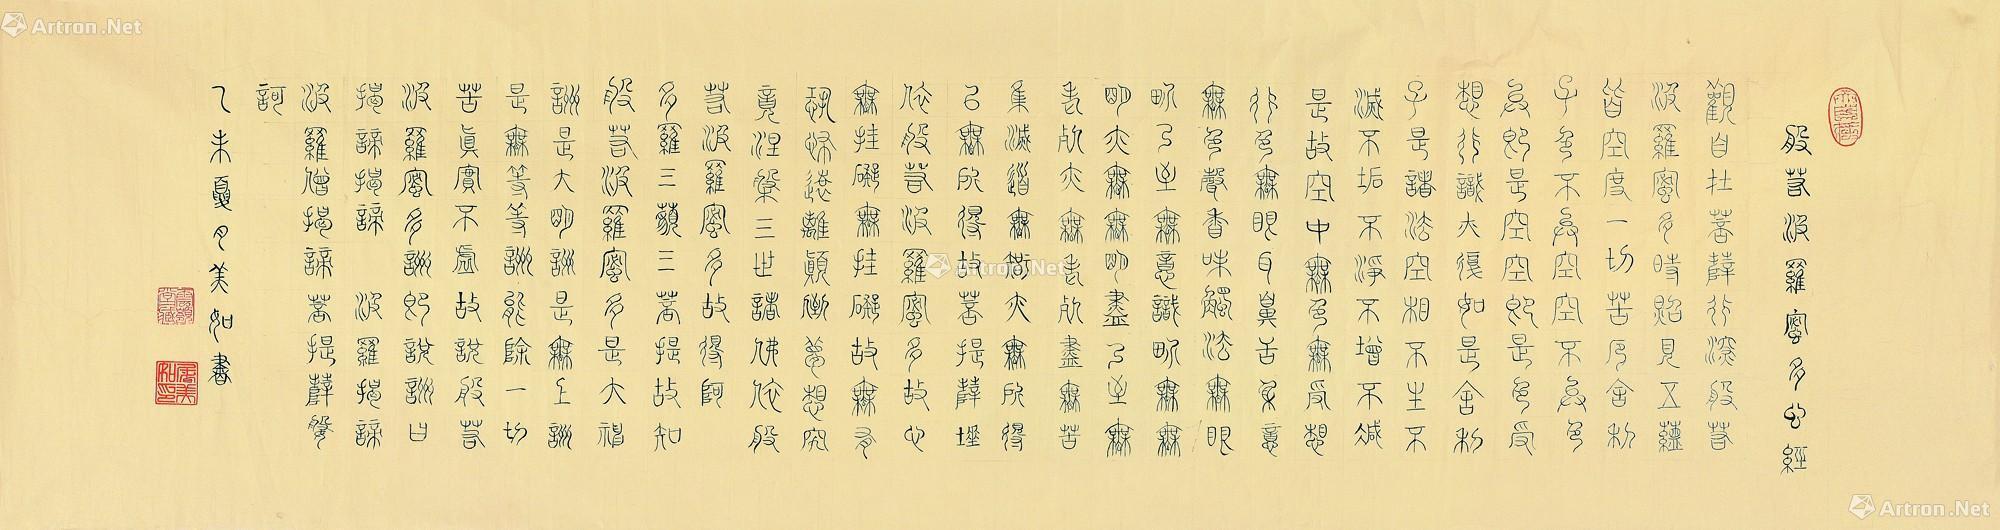 般若波羅蜜多心經
觀自在菩薩行深般若
波羅蜜多時照見五蘊
皆空度一切苦厄舍利
子色不異空空不異色
色即是空空即是色受
想行識亦復如是舍利
子是諸法空相不生不
滅不垢不淨不增不減
是故空中無色無受想
行色無眼耳鼻舌身意
無色聲香味觸法無眼
界乃至無意識界無無
明亦無無明盡乃至無
老死亦無老死盡無苦
集滅道無智亦無所得
以無所得故菩提薩埵
依般若波羅蜜多故心
無挂礙無挂礙故無有
恐怖遠離顛倒夢想究
竟涅槃三世諸佛依般
若波羅蜜多故得阿
多羅三藐三菩提故知
般若波羅蜜多是大神
咒是大明咒是無上咒
是無等等咒能除一切
苦真實不虛故說般若
波羅蜜多咒即說咒曰
揭諦揭諦 波羅揭諦
波羅僧揭諦菩提薩婆
訶
乙未夏月美如書
Artron.Net
Artron.Net
Artron.Net
Artron.Net
Artron.Net